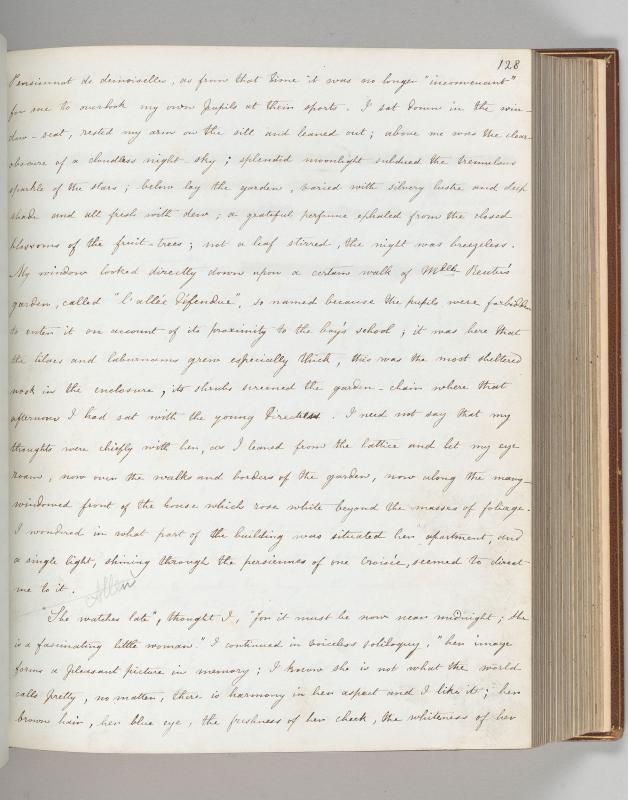 128
Pensionnat de demoiselles, as from that time it was no longer "inconvenant"
for me to overlook my own pupils at their sports. I sat down in the win-
dow-seat, rested my arm on the sill and leaned out; above me was the clear
obscure of a cloudless night-sky; splendid moonlight subdued the tremulous
sparkle of the stars; below lay the garden, varied with silvery lustre and deep
shade and all fresh with dew; a grateful perfume exhaled from the closed
blossoms of the fruit-trees; not a leaf stirred, the night was breezeless.
My window looked directly down upon a certain walk of Mdlle Reuter's
garden, called "l'allée défendue", so named because the pupils were forbidden
to enter it on account of its proximity to the boy's school; it was here that
the lilacs and laburnums grew especially thick, this was the most sheltered
nook in the enclosure, its shrubs screened the garden-chair where that
afternoon I had sat with the young Directress. I need not say that my
thoughts were chiefly with her, as I leaned from the lattice and let my eye
roam, now over the walks and borders of the garden, now along the many-
windowed front of the house which rose white beyond the masses of foliage.
I wondered in what part of the building was situated her apartment, and
a single light, shining through the persiennes of one croisée, seemed to direct
me to it.
Allen
"She watches late", thought I, "for it must be now near midnight; She
is a fascinating little woman." I continued in voiceless soliloquy, "her image
forms a pleasant picture in memory; I know she is not what the world
calls pretty, no matter, there is harmony in her aspect and I like it; her
brown hair, her blue eye, the freshness of her cheek, the whiteness of her